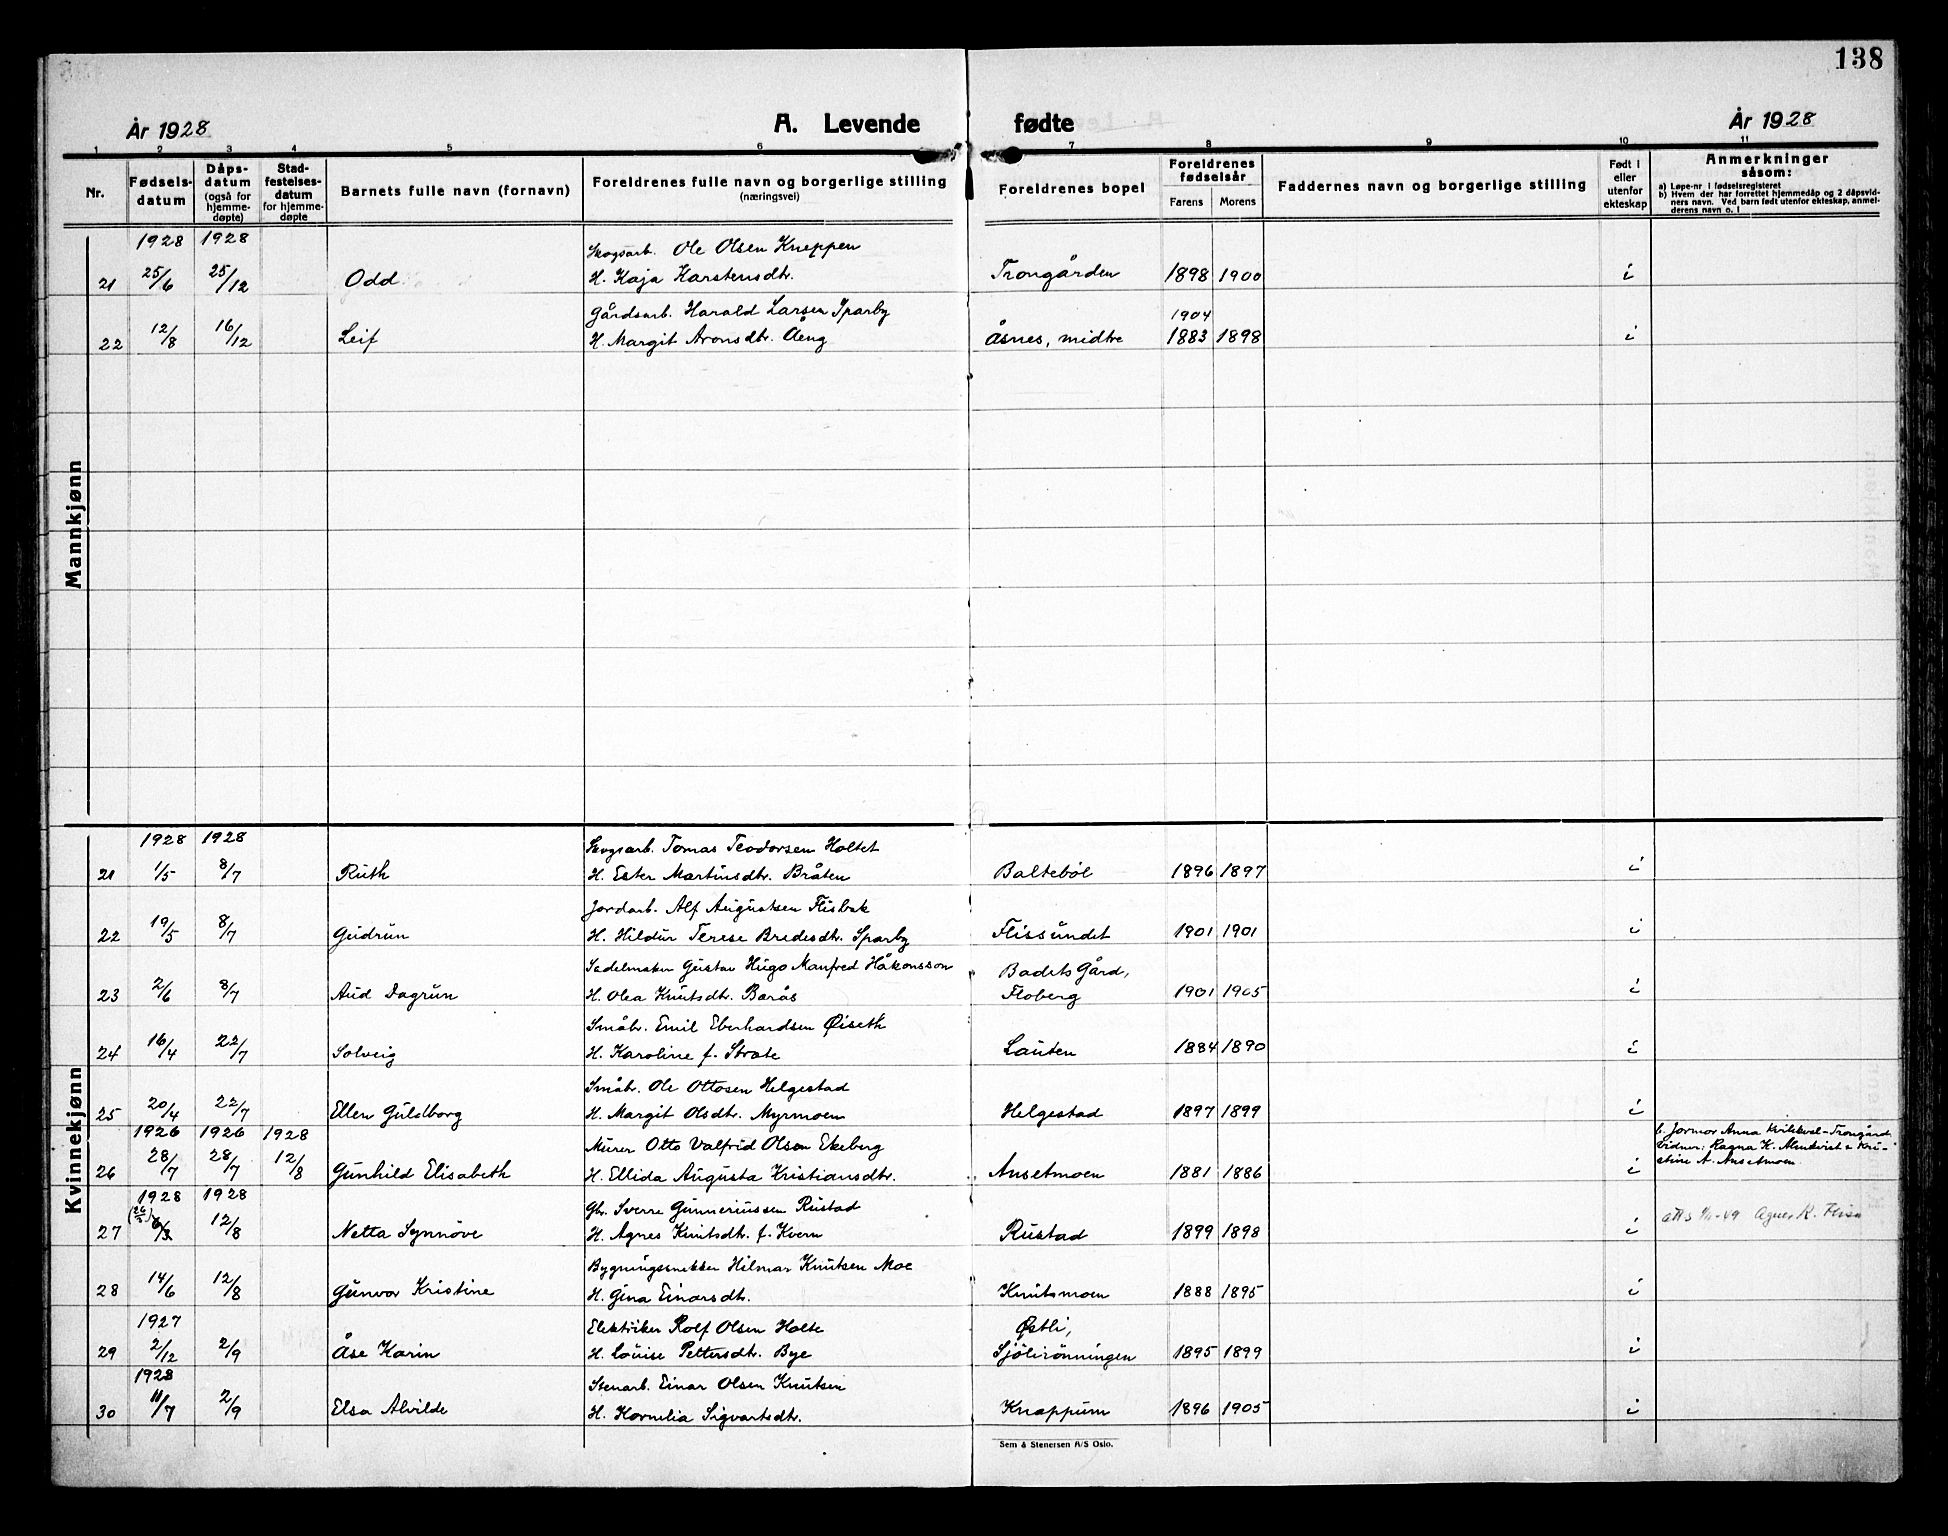 138
År 1928 A. Levende fødte År 1928
1 2 3 4 5 6 7 8 9 10 11
Nr. Fødselsdatum Dåpsdatum (også for hjemmedøpte) Stadfestelsesdatum for hjemmedøpte Barnets fulle navn (fornavn) Foreldrenes fulle navn og borgerlige stilling (næringsvei) Foreldrenes bopel Foreldrenes fødselsår Farens Morens Faddernes navn og borgerlige stilling Født i eller utenfor ekteskap Anmerkninger såsom:
a) Løpe-nr i fødselsregisteret
b) Hvem der har forrettet hjemmedåp og 2 dåpsvidners navn. Ved barn født utenfor ekteskap, anmelderens navn o. l
Mannkjønn
1928 1928 Skogsarb. Ole Olsen Kneppen
21 25/6 25/12 Odd H. Kaja Karstensdtr. Trongården 1898 1900 i
Gårdsarb. Harald Larsen Sparby 1904
22 12/8 16/12 Leif H. Margit Aronsdtr. Åeng Åsnes, midtre 1883 1898 i
Kvinnekjønn
1928 1928 Skogsarb. Tomas Teodorsen Holtet
21 1/5 8/7 Ruth H. Ester Martinsdtr. Bråten Baltebøl 1896 1897 i
Jordarb. Alf Augustsen Flisbak
22 19/5 8/7 Gudrun H. Hildur Terese Bredesdtr. Sparby Flissundet 1901 1901 i
Sadelmaker Gustav Hugo Manfred Håkonsson Badets Gård,
23 2/6 8/7 Aud Dagrun H. Olea Knutsdtr. Barås Floberg 1901 1905 i
Småbr. Emil Eberhardsen Øiseth
24 16/4 22/7 Solveig H. Karoline f. Strate Lauten 1884 1890 i
Småbr. Ole Ottosen Helgestad
25 20/4 22/7 Ellen Guldborg H. Margit Olsdtr. Myrmoen Helgestad 1897 1899 i
1926 1926 1928 Murer Otto Valfrid Olsen Ekeberg b. Jormor Anna Kvilekval-Trongård
26 28/7 28/7 12/8 Gunhild Elisabeth H. Ellida Augusta Kristiansdtr. Ansetmoen 1881 1886 i Vidner: Ragna K. & Kristine A. Ansetmoen
1928 1928 Gbr. Sverre Gunneriussen Rustad
27 (26/5) 6/3 12/8 Netta Synnöve H. Agnes Knutsdtr. f. Kvern Rustad 1899 1898 i -49 Agnes R. Flisa
Bygningssnekker Hilmar Knutsen Moe
28 14/6 12/8 Gunvor Kristine H. Gina Einarsdtr. Knutsmoen 1888 1895 i
1927 Elektriker Rolf Olsen Holte Østli,
29 2/12 2/9 Åse Karin H. Louise Pettersdtr. Bye Sjölirönningen 1895 1899 i
1928 Stenarb. Einar Olsen Knutsen
30 11/7 2/9 Elsa Alvilde H. Kornelia Sigvartsdtr. Knappum 1896 1905 i
Sem & Stenersen A/S Oslo.